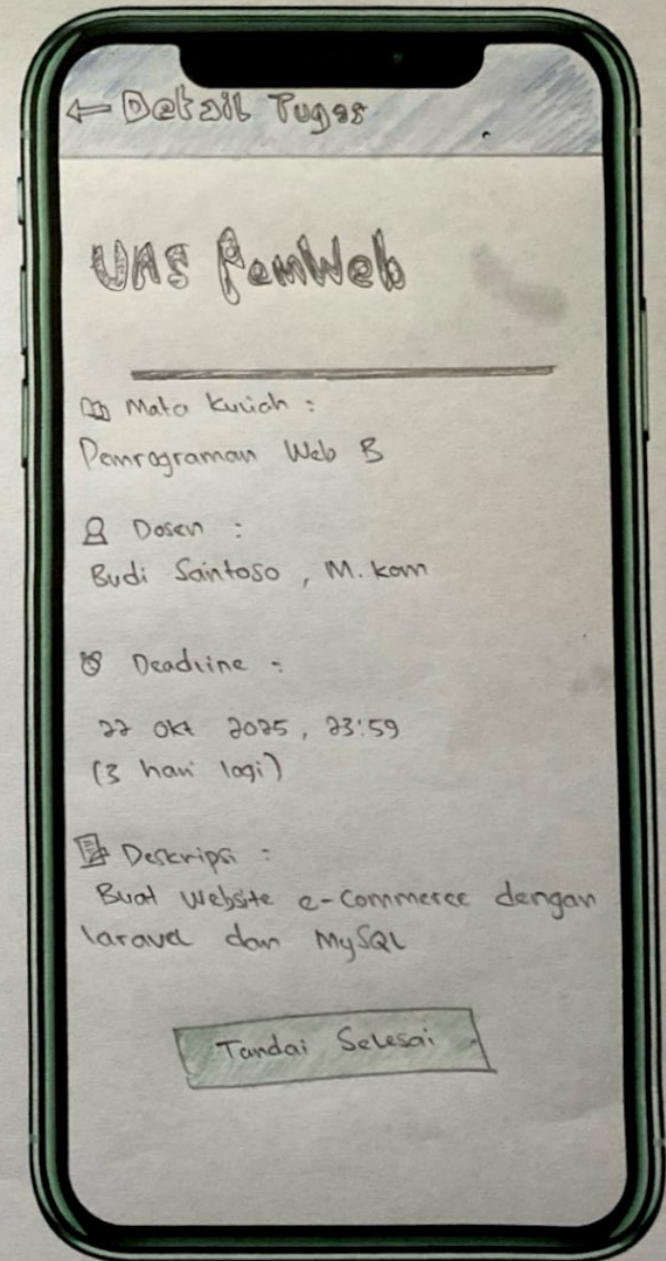 Detail Tugas
UAS PemWeb
Mata Kuliah :
Pemrograman Web B
Dosen :
Budi Santoso, M.kom
Deadline :
22 Okt 2025, 23:59
(3 hari lagi)
Deskripsi :
Buat Website e-Commerce dengan
laravel dan MySQL
Tandai Selesai